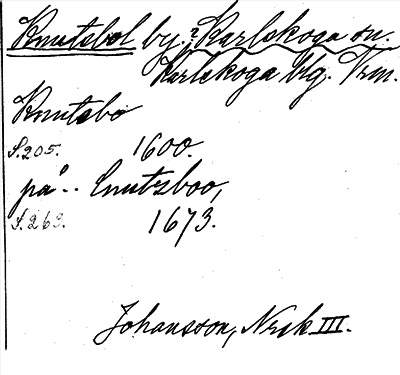 Knutsbol by, ? Karlskoga sn.
Karlskoga blg. Vrm.
Knutsbo
S. 205. 1600.
på .. Cnutzboo,
S. 263. 1673.
Johansson, Norsk III.